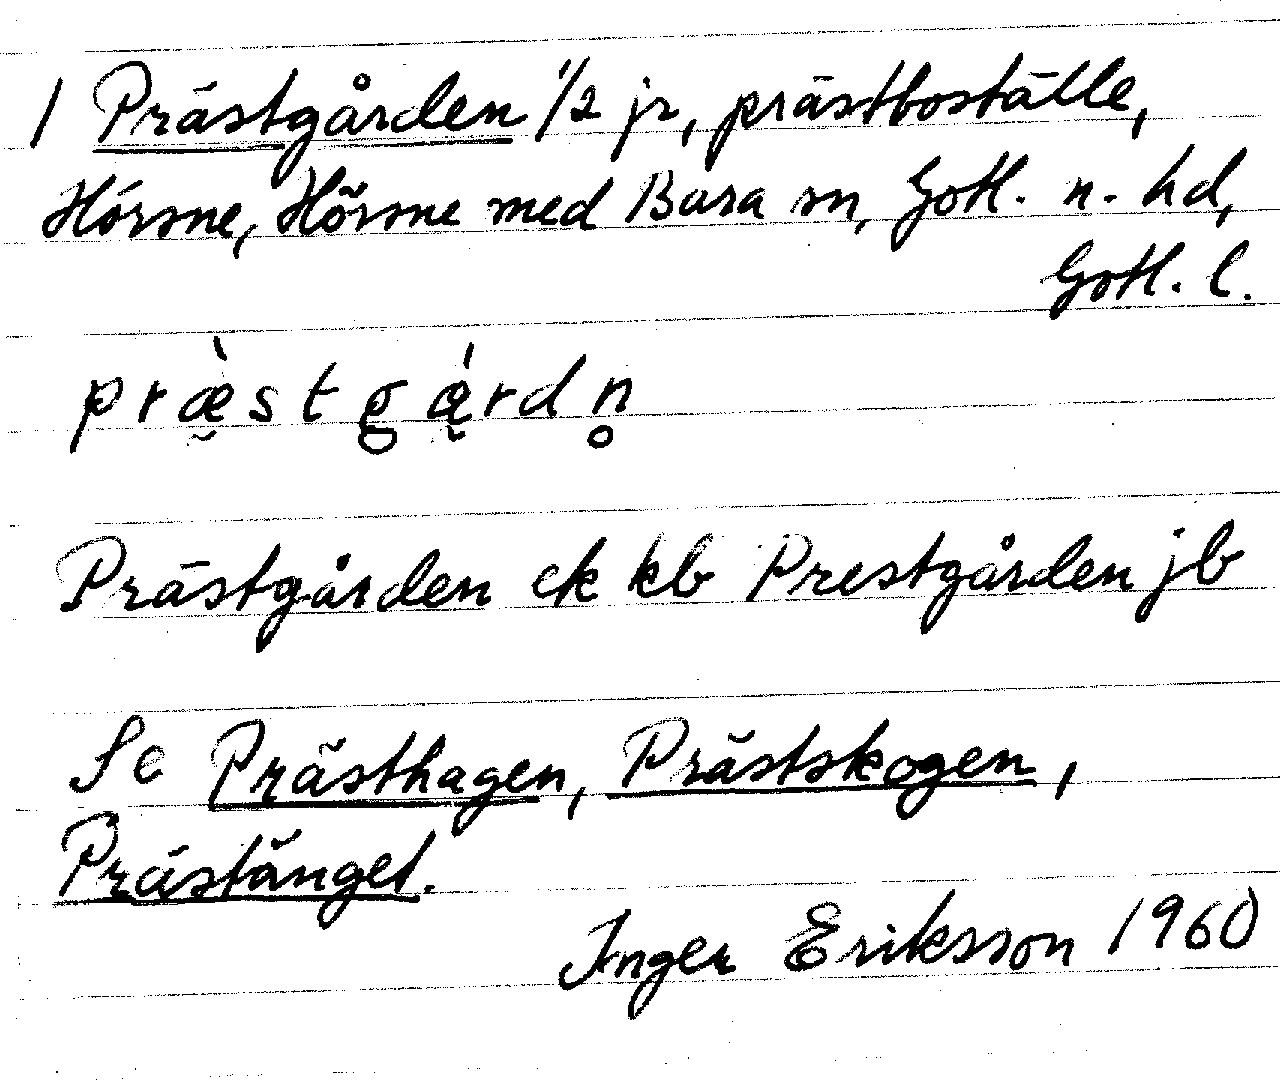 1 Prästgården 1/2 jr, prästboställe,
Hörsne, Hörsne med Bara sn, Gotl. n. hd,
Gotl. l.
præ̀stgǽ̨rdn̥
Prästgården ek kb Prestgården jb
Se Prästhagen, Prästskogen,
Prästänget.
Inger Eriksson 1960